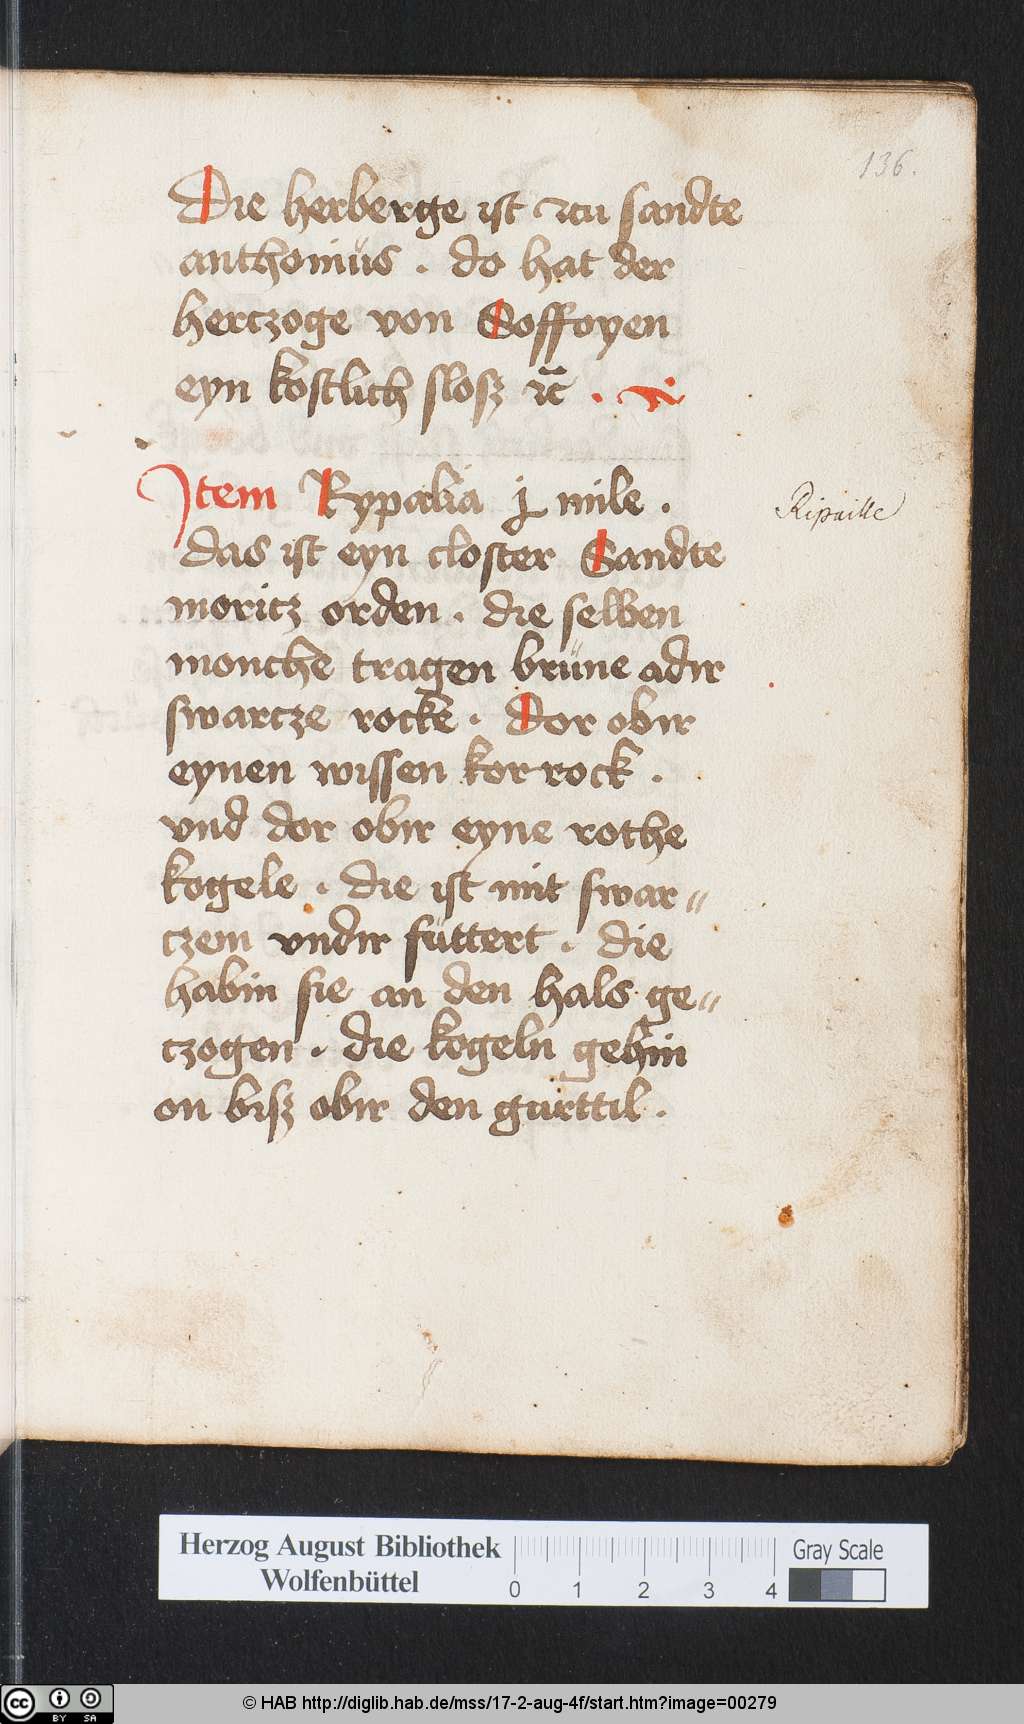 136.
Die herberge ist czu sandte
anthoniüs . do hat der
hertzoge von Soffoyen
eyn kostlich slosz ꝛc̄ .
Item Rypalia j mile .
Ripaille
das ist eyn closter Sandte
moritz orden . die selben
monche tragen brüne adir
swartze rocke . Dor obir
eynen wissen korrock .
vnd dor obir eyne rothe
kogele . die ist mit swar〃
czem vndir füttert . die
habin sie an den hals ge〃
tzogen . die kogeln gehin
on bisz obir den gürttil .
Herzog August Bibliothek
Wolfenbüttel
0 1 2 3 4
Gray Scale
cc BY SA
© HAB http://diglib.hab.de/mss/17-2-aug-4f/start.htm?image=00279